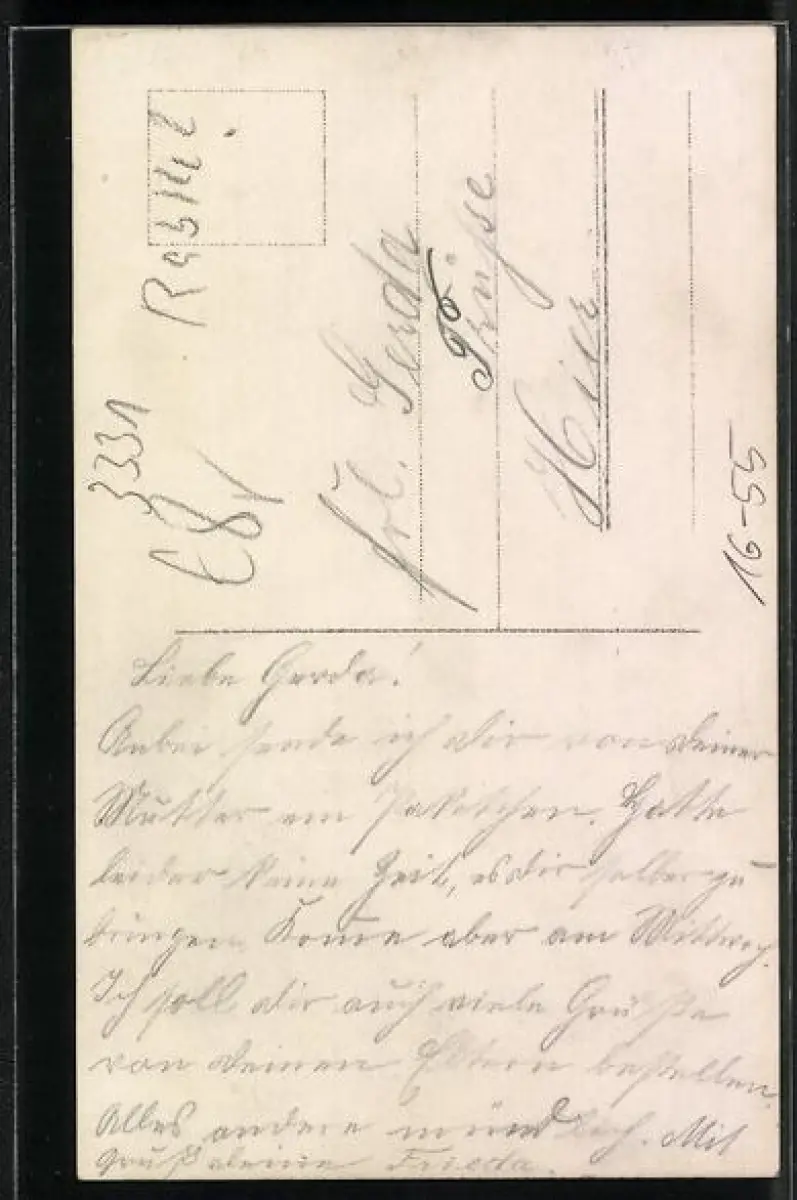 RabKl.
3331
€8,-
Frl. Gerda
Hier
16-55
Liebe Gerda!
Anbei sende ich dir von deiner
Mutter ein Paketchen. Hatte
leider keine Zeit, es dir selber zu
bringen. Kome aber am Mittwoch.
Ich soll dir auch viele Grüße
von deinen Eltern bestellen.
Alles andere mündlich. Mit
Gruß deine Frieda.